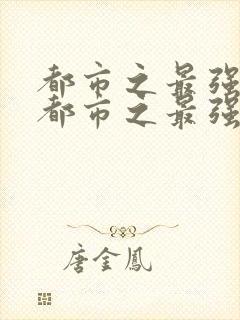 都市之最强
都市之最强
唐金鳳